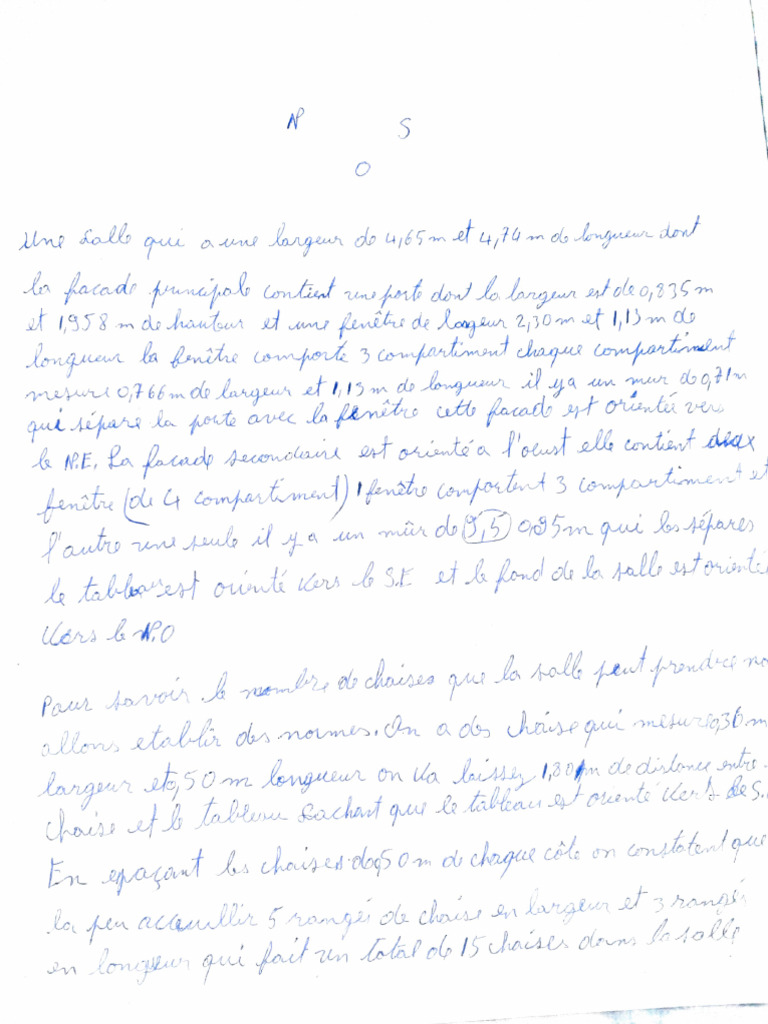 N S
O
Une salle qui a une largeur de 4,65 m et 4,74 m de longueur dont
la façade principale contient une porte dont la largeur est de 0,835 m
et 1,958 m de hauteur et une fenêtre de largeur 2,30 m et 1,13 m de
longueur la fenêtre comporte 3 compartiment chaque compartiment
mesure 0,766 m de largeur et 1,13 m de longueur il y a un mur de 0,71 m
qui sépare la porte avec la fenêtre cette façade est orientée vers
le N.E. La façade secondaire est orienté a l'ouest elle contient deux
fenêtre (de 4 compartiment) 1 fenêtre comportent 3 compartiment et
l'autre une seule il y a un mûr de 9,5 0,95 m qui les sépares
le tableau est orienté vers le S.E et le fond de la salle est orienté
Vers le N.O
Pour savoir le nombre de chaises que la salle peut prendre no
allons etablir des normes. On a des chaise qui mesure 0,36 m
largeur et 0,50 m longueur on va laisser 1,80 m de distance entre
chaise et le tableau sachant que le tableau est orienté vers le S.
En epaçant les chaises de 0,50 m de chaque côte on constatent que
la peu accuillir 5 rangés de chaise en largeur et 3 rangés
en longueur qui fait un total de 15 chaises dans la salle